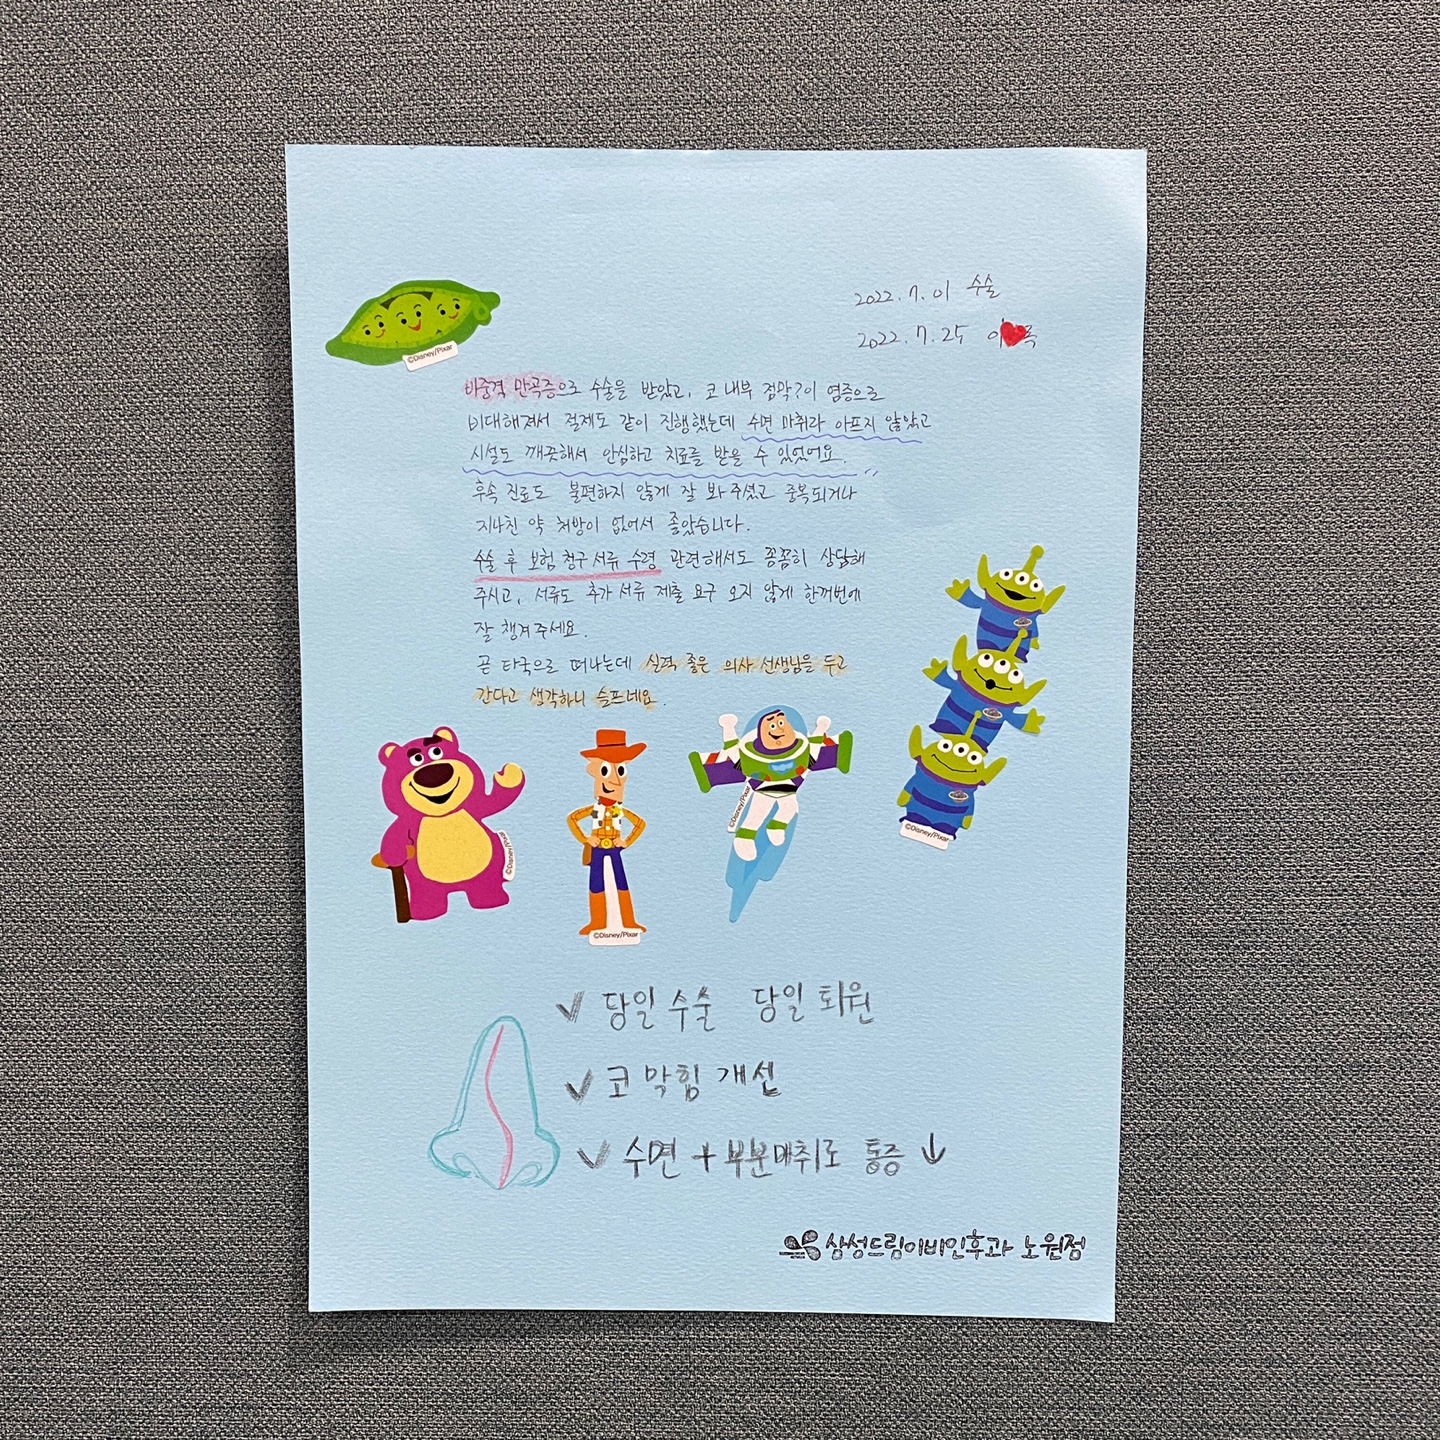 2022.7.01 수술
2022.7.25 이 록
©Disney/Pixar
비중격 만곡증으로 수술을 받았고, 코 내부 점막?이 염증으로
비대해져서 절제도 같이 진행했는데 수면 마취라 아프지 않았고
시설도 깨끗해서 안심하고 치료를 받을 수 있었어요.
후속 진료도 불편하지 않게 잘 봐 주셨고 중복되거나
지나친 약 처방이 없어서 좋았습니다.
수술 후 보험 청구 서류 수령 관련해서도 꼼꼼히 상담해
주시고, 서류도 추가 서류 제출 요구 오지 않게 한꺼번에
잘 챙겨주세요.
곧 타국으로 떠나는데 실력 좋은 의사 선생님을 두고
간다고 생각하니 슬프네요.
©Disney/Pixar
©Disney/Pixar
©Disney/Pixar
©Disney/Pixar
✓ 당일 수술 당일 퇴원
✓ 코 막힘 개선
✓ 수면 + 부분마취로 통증 ↓
삼성드림이비인후과 노원점